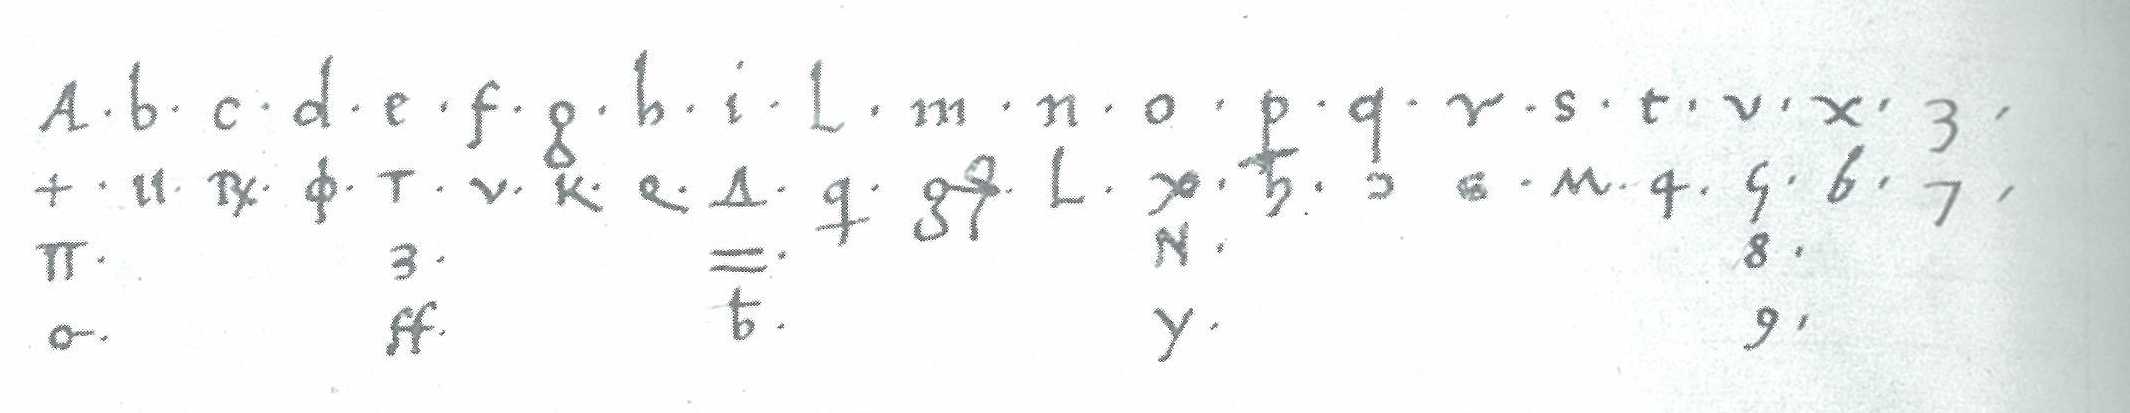 A · b · c · d · e · f · g · h · i · L · m · n · o · p · q · r · s · t · v · x · 3 ·
+ · u · · ϕ · T · v · k · e · Δ · q · g · L · · · ɔ · 6 · M · 4 · 5 · 6 · 7 ·
π · 3 · = · N · 8 ·
o- · ff · ƀ · y · 9 ·